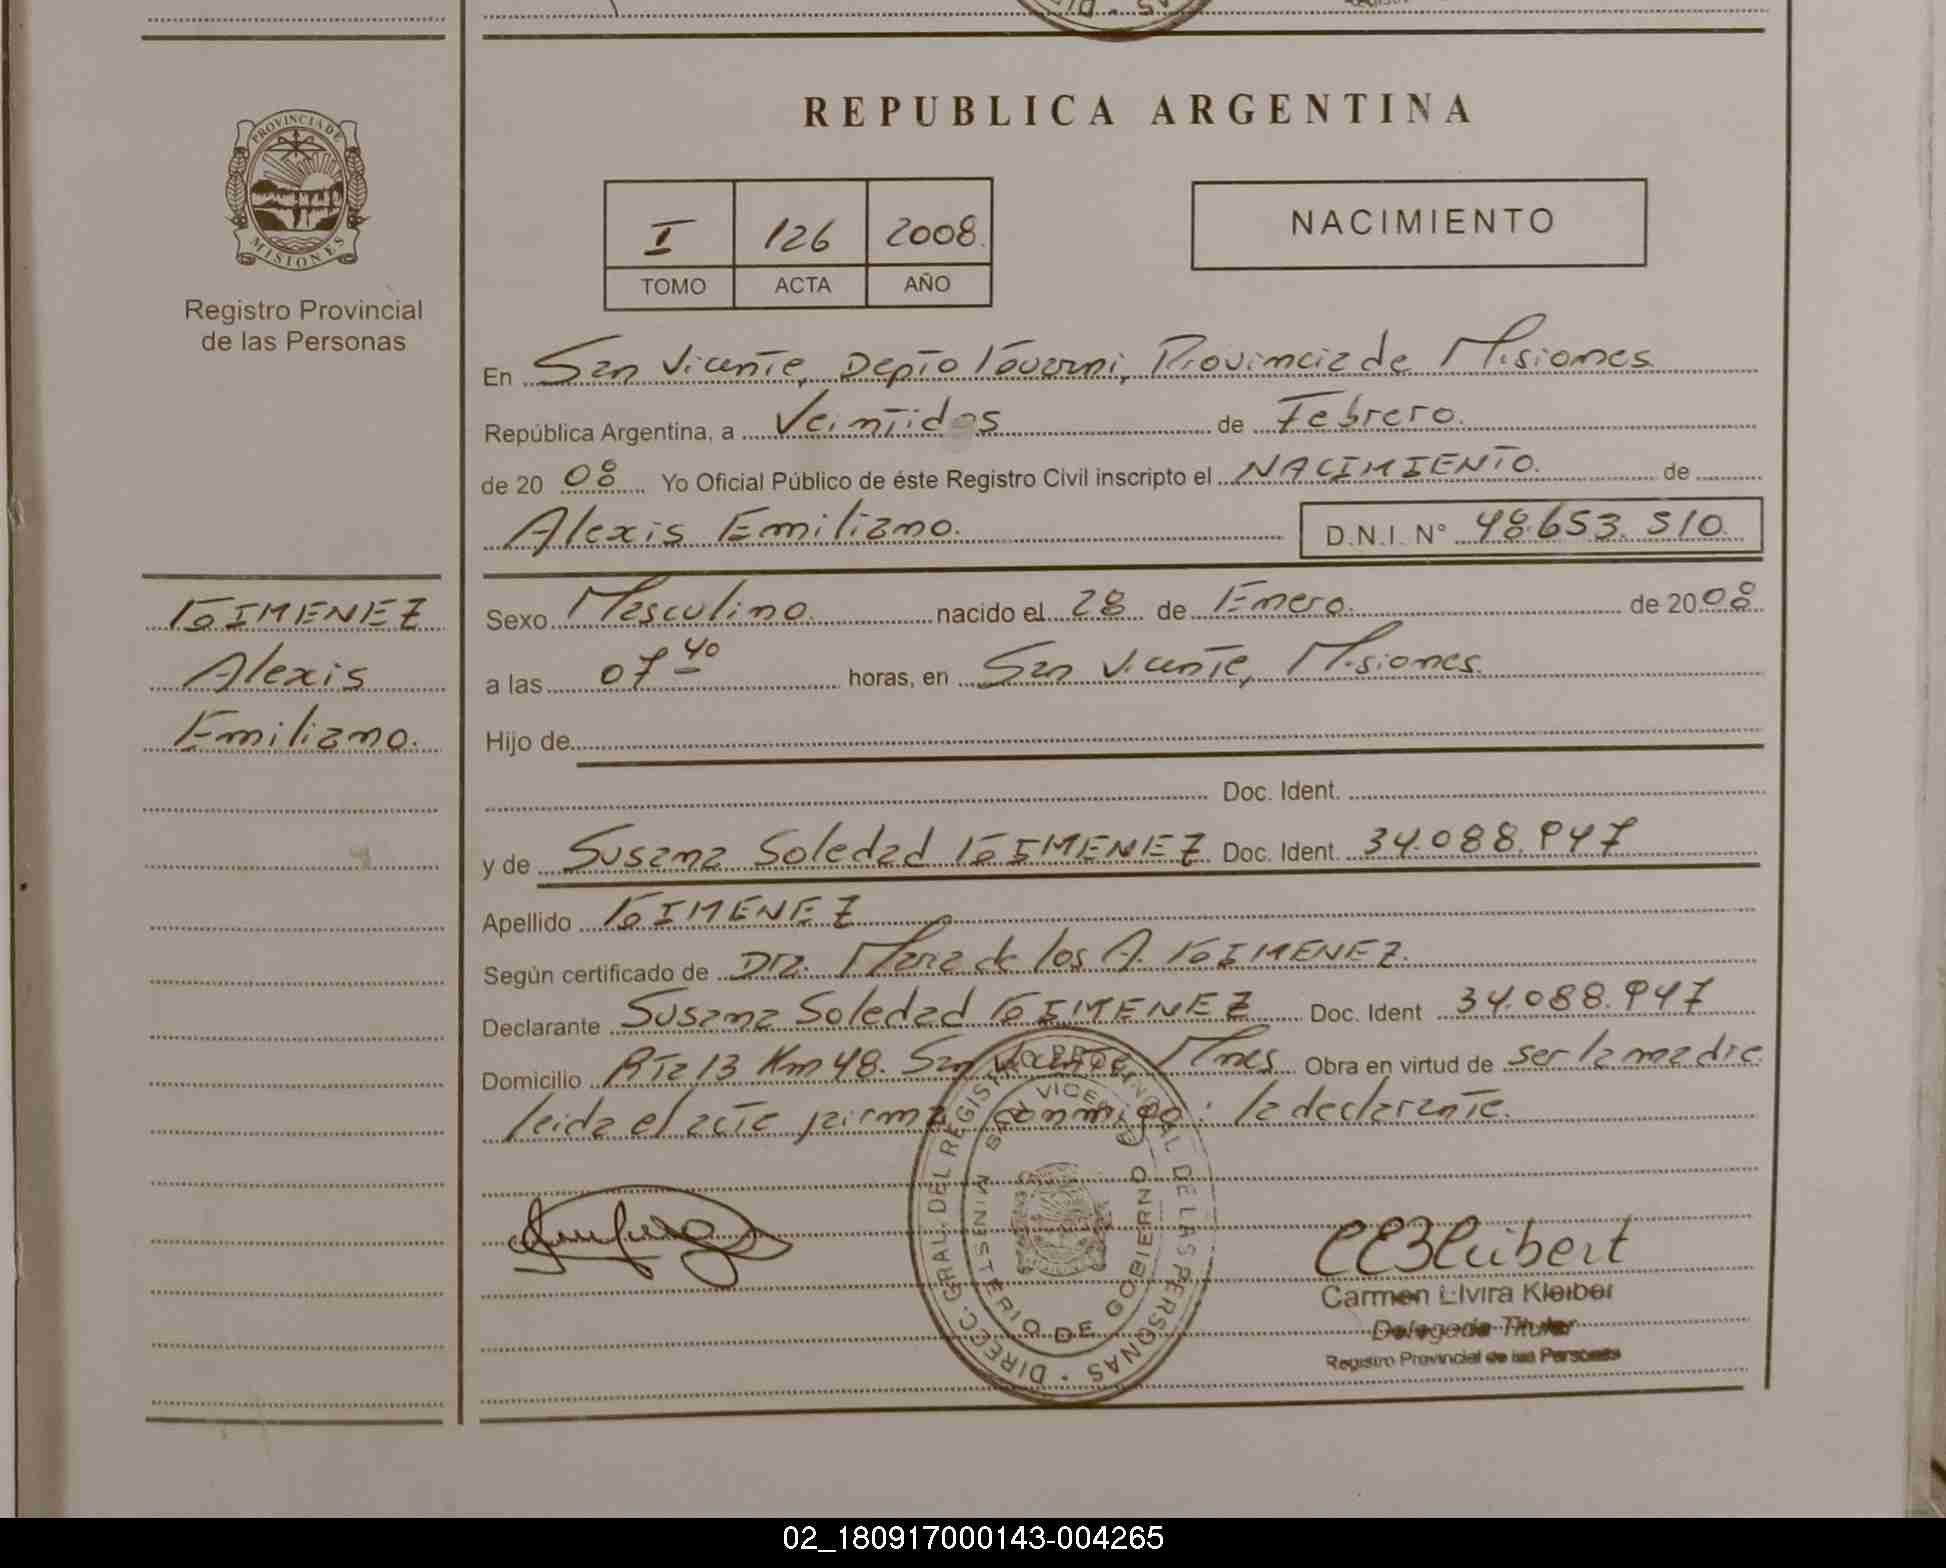 REPUBLICA ARGENTINA
PROVINCIA DE
MISIONES
Registro Provincial
de las Personas
I 126 2008.
TOMO ACTA AÑO
NACIMIENTO
En San Vicente, Depto Guarani, Provincia de Misiones
República Argentina, a Veintidos de Febrero.
de 20 08 Yo Oficial Público de éste Registro Civil inscripto el NACIMIENTO. de
Alexis Emiliano. D.N.I. N° 48.653.510.
GIMENEZ
Alexis
Emiliano.
Sexo Masculino. nacido el 28 de Enero. de 20 08
a las 07 40 horas, en San Vicente, Misiones
Hijo de
Doc. Ident.
y de Susana Soledad GIMENEZ Doc. Ident. 34.088.947
Apellido GIMENEZ
Según certificado de Dra. Maria de los A. GIMENEZ.
Declarante Susana Soledad GIMENEZ Doc. Ident 34.088.947
Domicilio Rta 13 Km 48. San Vicente, Mnes Obra en virtud de ser la madre
leida el acta firma conmigo: la declarante.
DIRECC. GRAL. DEL REGISTRO PROVINCIAL DE LAS PERSONAS
SAN VICENTE
MINISTERIO DE GOBIERNO
Carmen Elvira Kleiber
Delegada Titular
Registro Provincial de las Personas
02_180917000143-004265